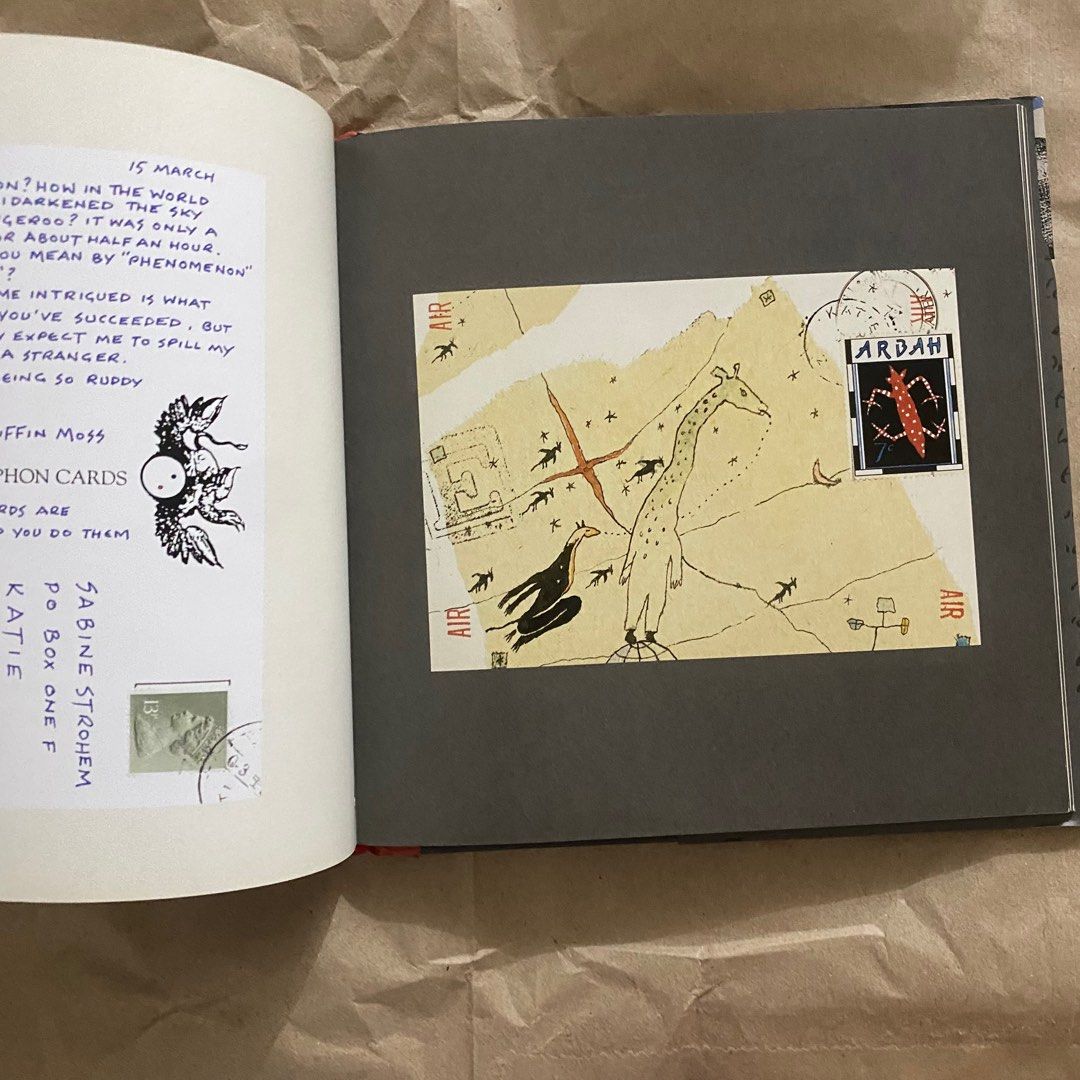 15 MARCH
ON? HOW IN THE WORLD
I DARKENED THE SKY
GEROO? IT WAS ONLY A
OR ABOUT HALF AN HOUR.
OU MEAN BY "PHENOMENON"
"?
ME INTRIGUED IS WHAT
YOU'VE SUCCEEDED, BUT
Y EXPECT ME TO SPILL MY
A STRANGER.
EING SO RUDDY
IFFIN MOSS
PHON CARDS
RDS ARE
D YOU DO THEM
SABINE STROHEM
PO BOX ONE F
KATIE
13P
AIR
AIR
KATIE
ARBAH
7c
AIR
AIR